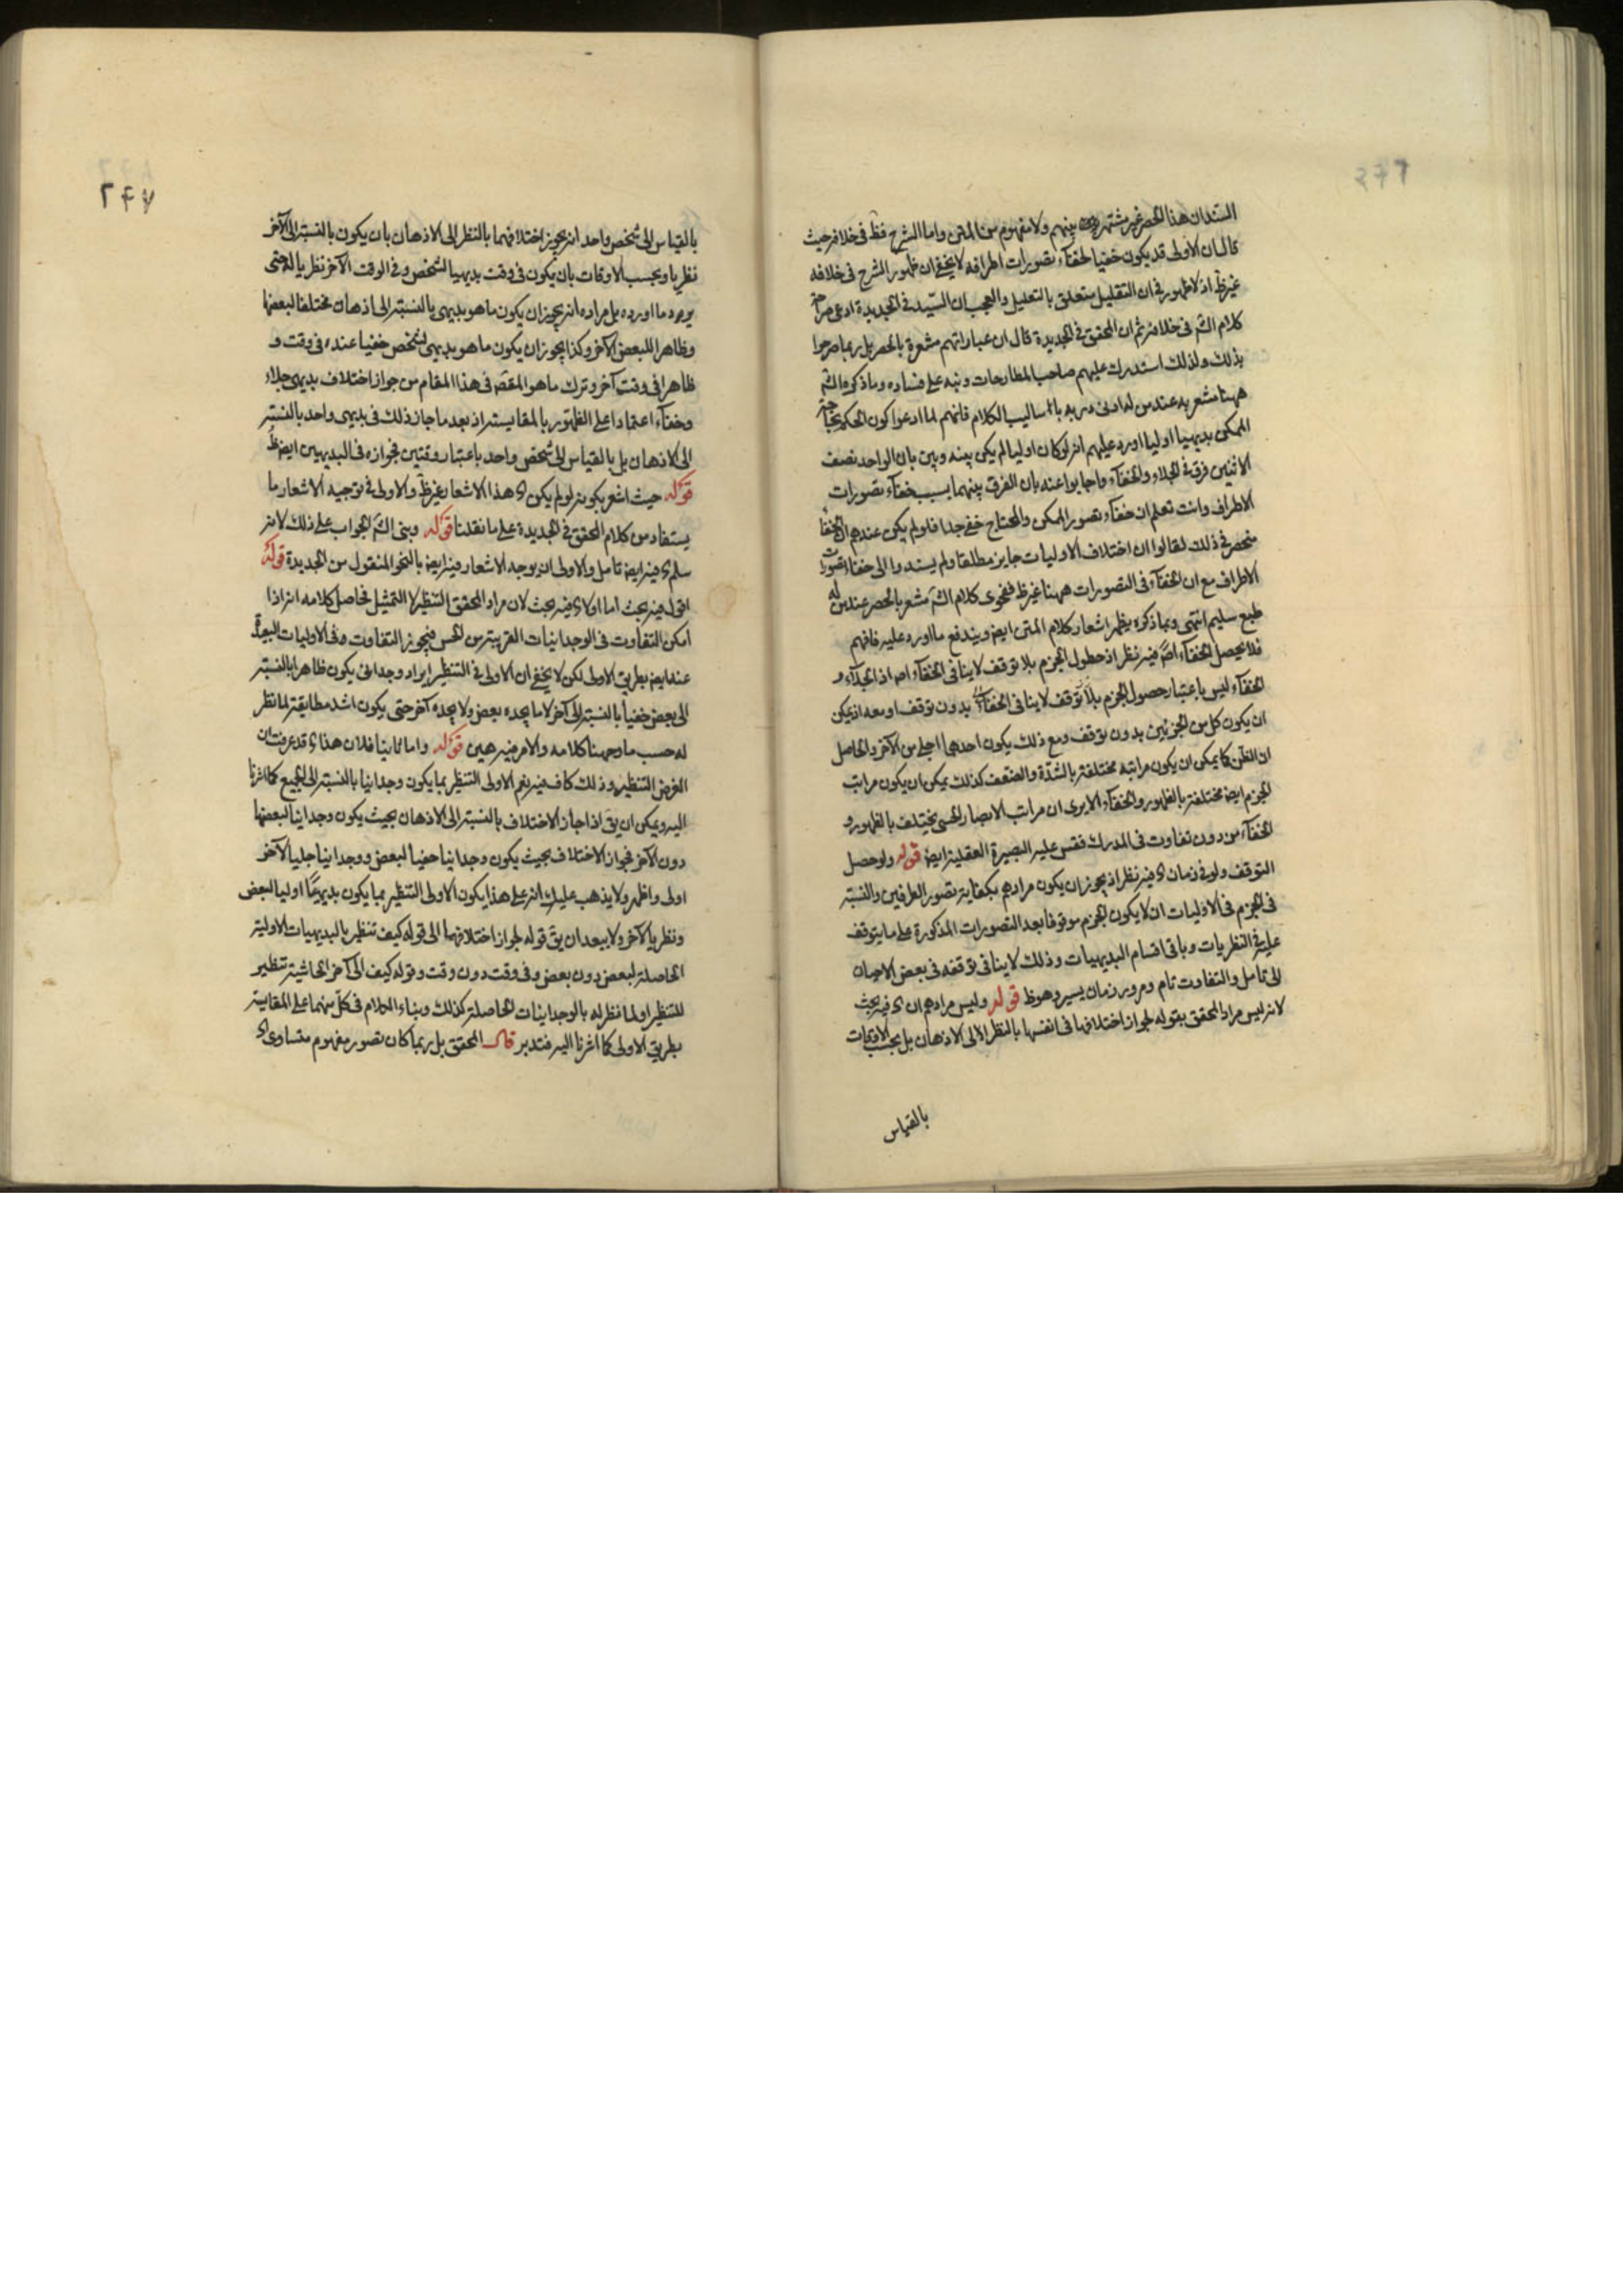 السند ان هذا الحصر غير مشتهر بينهم ولا مفهوم من المتن واما الشرح فظ فى خلافه حيث
قال ان الاولى قد يكون خفيا لخفآء تصورات اطرافه لا يخفى ان ظهور الشرح فى خلافه
غير ظ اذ لا ظهور فى ان التقليل متعلق بالتعليل والعجب ان السّيد فى الجديدة ادعى صراحة
كلام الشه فى خلافه ثم ان المحقق فى الجديدة قال ان عباراتهم مشعرة بالحصر بل ربما صرحوا
بذلك ولذلك استدرك عليهم صاحب المطارحات ونبه على فساده وما ذكره الشه
ههنا مشعر به عند من له ادنى دربه باساليب الكلام فانهم لما ادعوا كون الحكم بحاجة
الممكن بديهيا اوليا اورد عليهم انه لو كان اوليا لم يكن بينه وبين بان الواحد نصف
الاثنين فرق فى الجلاء والخفآء واجابوا عنه بان الفرق بينهما بسبب خفآء تصورات
الاطراف وانت تعلم ان خفآء تصور الممكن والمحتاج خفى جدا فلو لم يكن عندهم ان الخفا
منحصر فى ذلك لقالوا ان اختلاف الاوليات جايز مطلقا ولم يسندوا الى خفاء تصورات
الاطراف مع ان الخفآء فى التصورات ههنا غير ظ ففحوى كلام الشه مشعر بالحصر عند من له
طبع سليم انتهى وبما ذكره يظهر اشعار كلام المتن ايض ويندفع ما اورد عليه فافهم
فلا يحصل الخفآء اصلا فيه نظر اذ حصول الجزم بلا توقف لا ينافى الخفآء اصلا اذ الجلاء و
الخفآء ليس باعتبار حصول الجزم بلا توقف لا ينافى الخفآء بدون توقف او معه اذ يمكن
ان يكون كل من الجزئين بدون توقف ومع ذلك يكون احدهما اجلى من الآخر والحاصل
ان الظن كما يمكن ان يكون مراتبه مختلفة بالشدّة والضعف كذلك يمكن ان يكون مراتب
الجزم ايض مختلفة بالظهور والخفآء الا يرى ان مراتب الابصار الحسى يختلف بالظهور و
الخفآء من دون تفاوت فى المدرك فقس عليه البصيرة العقلية ايض قوله ولو حصل
التوقف ولو فى زمان فيه نظر اذ يجوز ان يكون مرادهم بكفاية تصور الطرفين والنسبة
فى الجزم فى الاوليات ان لا يكون الجزم موقوفا بعد التصورات المذكورة على ما يتوقف
عليه فى النظريات وباقى اقسام البديهيات وذلك لا ينافى توقفه فى بعض الاحيان
الى تامل والتفاوت تام ومرور زمان يسير وهو ظ قوله وليس مرادهم ان فيه بحث
لانه ليس مراد المحقق بقوله لجواز اختلافها فى انفسها بالنظر الا الى الاذهان بل بحسب الاوقات
بالقياس
٢٤٧
بالقياس الى شخص واحد انه يجوز اختلافهما بالنظر الى الاذهان بان يكون بالنسبة الى الآخر
نظريا وبحسب الاوقات بان يكون فى وقت بديهيا لشخص وفى الوقت الآخر نظريا له حتى
يرد ما اورده بل مراده انه يجوز ان يكون ما هو بديهى بالنسبة الى اذهان مختلفا لبعضها
وظاهرا للبعض الآخر وكذا يجوز ان يكون ما هو بديهى لشخص خفيا عنده فى وقت و
ظاهرا فى وقت آخر وترك ما هو المقصَ فى هذا المقام من جواز اختلاف بديهى جلاء
وخفآء اعتمادا على الظهور بالمقايسة اذ بعد ما جاز ذلك فى بديهى واحد بالنسبة
الى الاذهان بل بالقياس الى شخص واحد باعتبار وقتين فجوازه فى البديهيين ايض ظ
قوله حيث اشعر بكونه لو لم يكن هذا الاشعار غير ظ والاولى فى توجيه الاشعار ما
يستفاد من كلام المحقق فى الجديدة على ما نقلنا قوله وبنى الشه الجواب على ذلك لانه
سلم فيه ايض تامل والاولى ان يوجه الاشعار فيه ايض بالنحو المنقول من الجديدة قوله
اقول فيه بحث اما اولا فيه بحث لان مراد المحقق التنظير لا التمثيل فحاصل كلامه انه اذا
امكن التفاوت فى الوجدانيات القريبة من الحس فيجوز التفاوت فى الاوليات البعيدة
عنه ايض بطريق الاولى لكن لا يخفى ان الاولى فى التنظير ايراد وجدانى يكون ظاهرا بالنسبة
الى بعض خفيا بالنسبة الى آخر لا ما يجده بعض ولا يجده آخر حتى يكون اشد مطابقة لما نظر
له حسب ما وجهنا كلامه والامر فيه هين قوله واما ثانيا فلان هذا قد عرفت ان
الغرض التنظير وذلك كاف فيه نعم الاولى التنظير بما يكون وجدانيا بالنسبة الى الجميع كما اشرنا
اليه ويمكن ان يق اذا جاز الاختلاف بالنسبة الى الاذهان بحيث يكون وجدانيا لبعضها
دون الآخر فجواز الاختلاف بحيث يكون وجدانيا خفيا لبعض ووجدانيا جليا لآخر
اولى واظهر ولا يذهب عليك انه على هذا يكون الاولى التنظير بما يكون بديهيًا اوليا لبعض
ونظريا لآخر ولا يبعد ان يق قوله لجواز اختلافهما الى قوله كيف تنظير بالبديهيات الاولية
الحاصلة لبعض دون بعض وفى وقت دون وقت وقوله كيف الى آخر الحاشية تنظير
للتنظير او لما نظر له بالوجدانيات الحاصلة كذلك وبناء الكلام فى كلّ منهما على المقايسة
بطريق الاولى كما اشرنا اليه فتدبر قال المحقق بل ربما كان تصور مفهوم متساوى